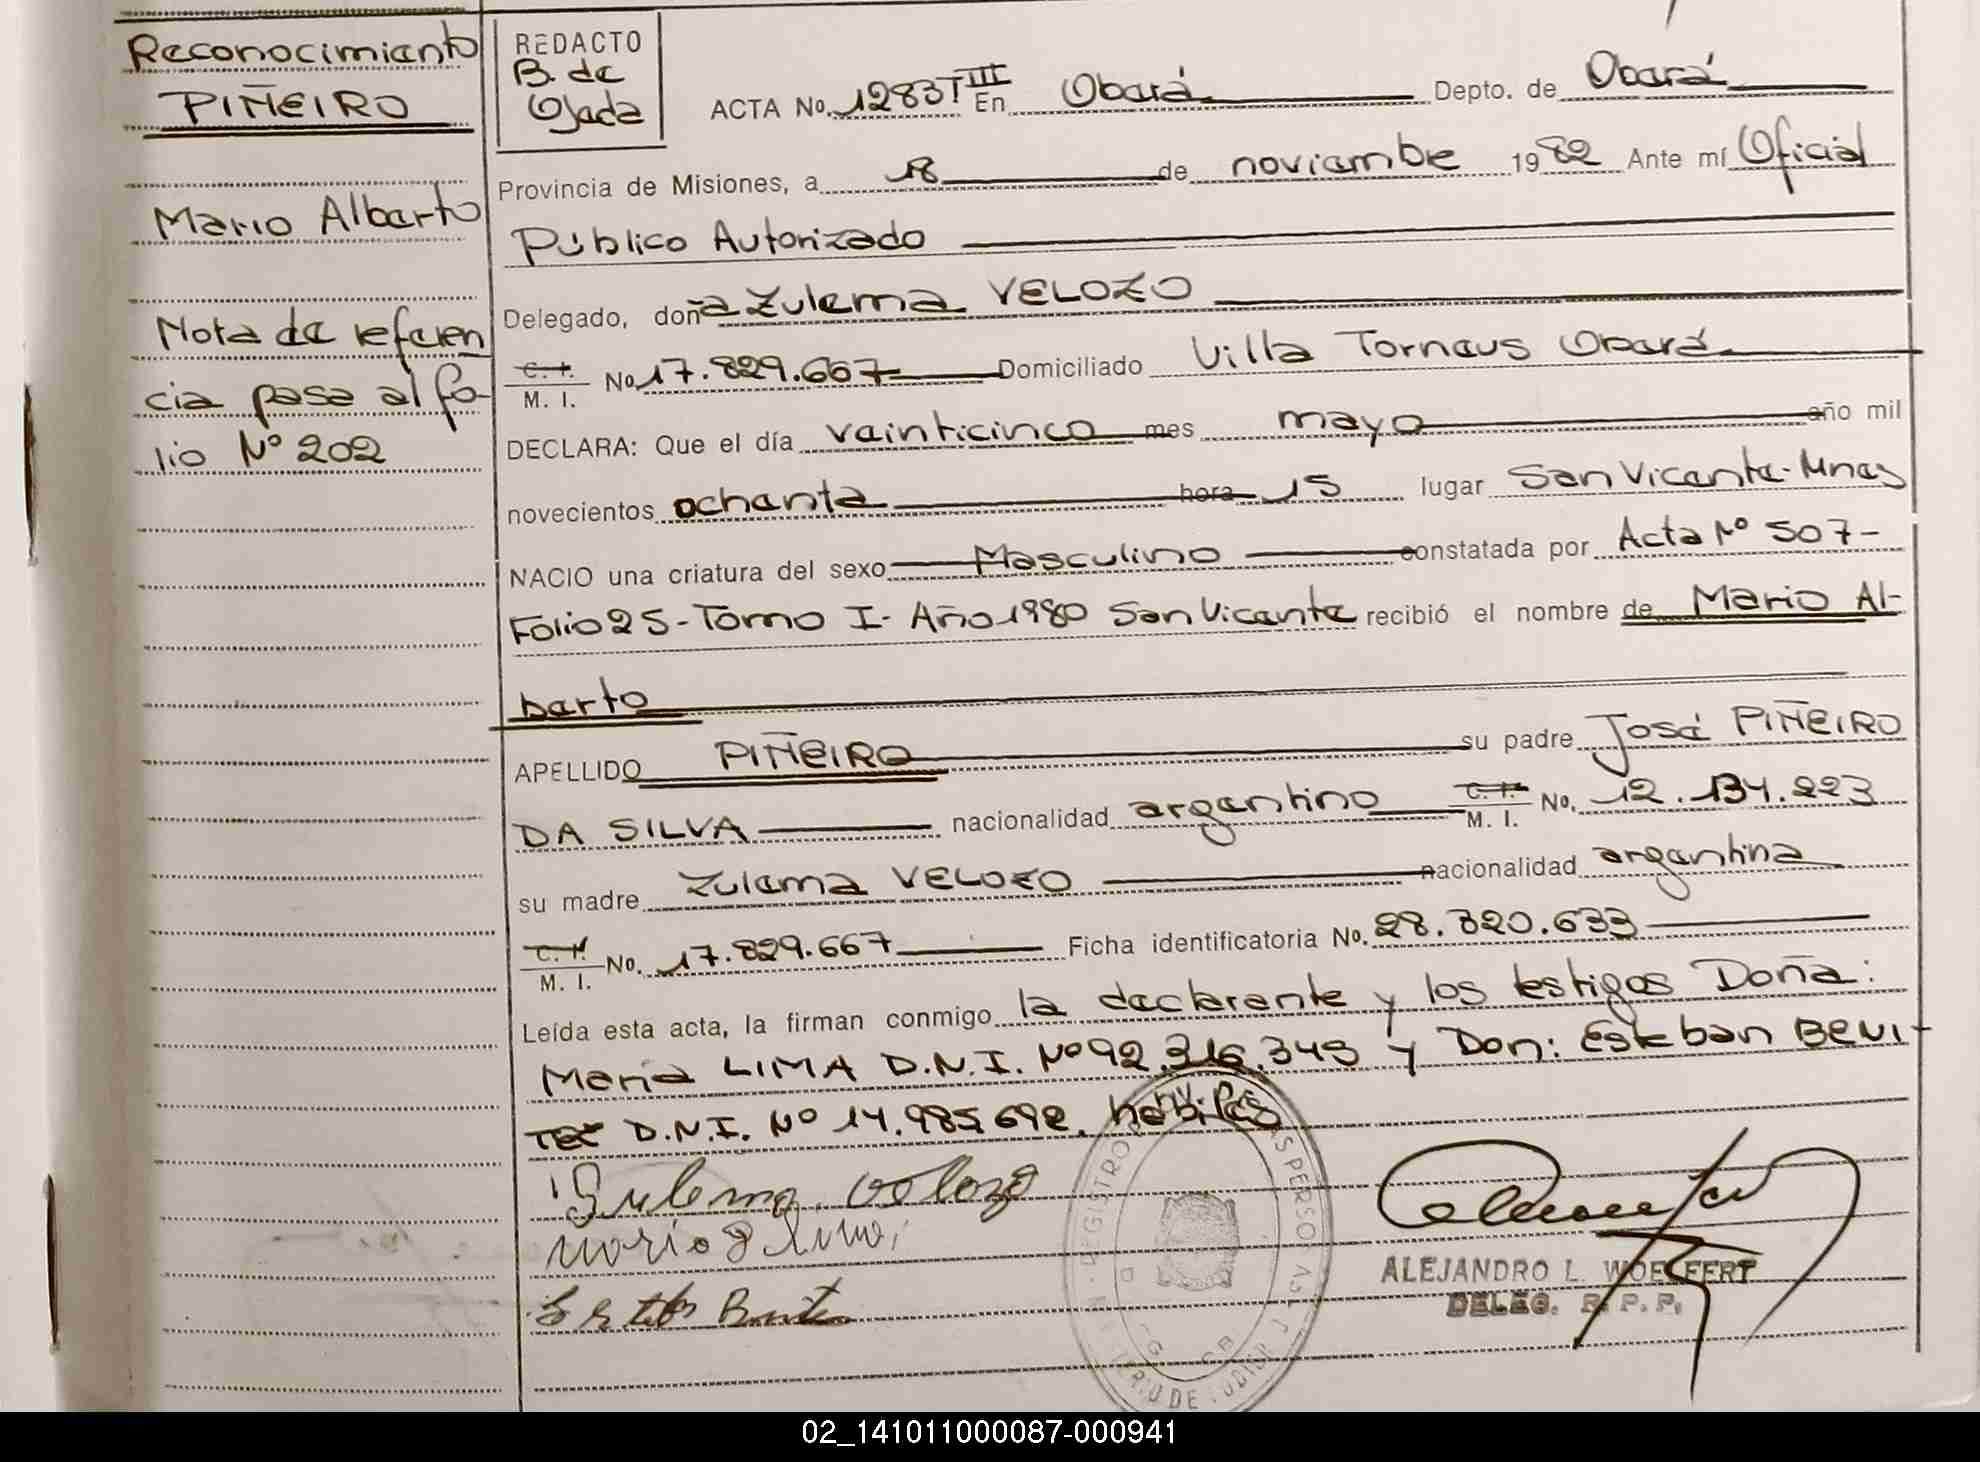 Reconocimiento
PIÑEIRO
Mario Alberto
Nota de referen
cia pasa al fo-
lio Nº 202
REDACTO
B. de
Ojeda
ACTA No. 1283 T III En Oberá Depto. de Oberá
Provincia de Misiones, a 18 de noviembre 1982 Ante mí Oficial
Público Autorizado
Delegado, doña Zulema VELOZO
C. I. / M. I. No. 17.829.667 Domiciliado Villa Torneus Oberá
DECLARA: Que el día veinticinco mes mayo año mil
novecientos ochenta hora 15 lugar San Vicente-Mnes
NACIO una criatura del sexo Masculino constatada por Acta Nº 507-
Folio 25-Tomo I-Año 1980 San Vicente recibió el nombre de Mario Al-
berto
APELLIDO PIÑEIRO su padre José PIÑEIRO
DA SILVA nacionalidad argentino C. I. / M. I. No. 12.134.223
su madre Zulema VELOZO nacionalidad argentina
C. I. / M. I. No. 17.829.667 Ficha identificatoria No. 28.320.633
Leída esta acta, la firman conmigo la declarante y los testigos Doña:
Maria LIMA D.N.I. Nº 92.316.349 y Don: Esteban BENI-
TEZ D.N.I. Nº 14.985.692. habiles
Sulema Velozo
ALEJANDRO L. WOELFERT
DELEG. R. P. P.
02_141011000087-000941